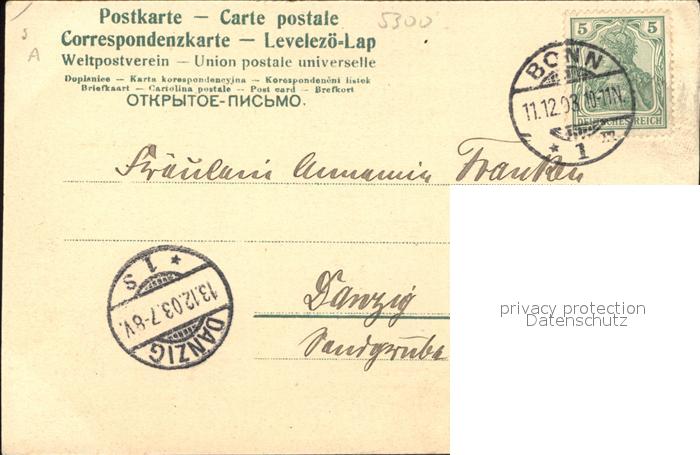 Postkarte – Carte postale
5300
Correspondenzkarte – Levelezö-Lap
Weltpostverein – Union postale universelle
Dopisnice – Karta korespondencyjna – Korespondenční lístek
Briefkaart – Cartolina postale – Post card – Brefkort
ОТКРЫТОЕ-ПИСЬМО.
A
5 5
DEUTSCHES REICH
BONN
11.12.03. 10-11N.
* 1 m
Fräulein Annamia Franken
* 1 S
13.12.03.7-8V.
DANZIG
Danzig
Sandgrube
privacy protection
Datenschutz